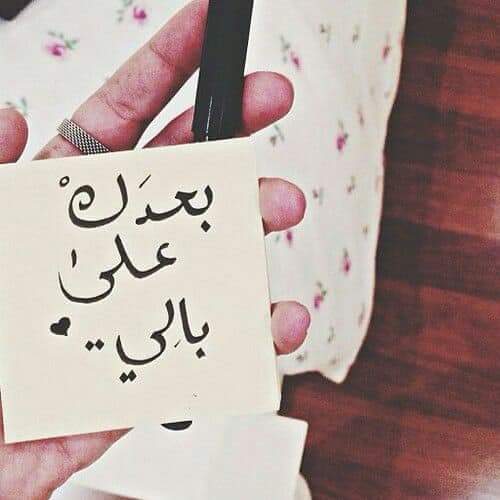 بعدَكْ
على
بالِي .. ♥